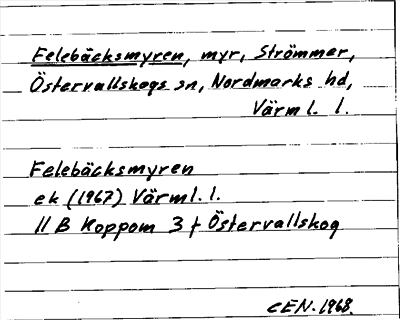 Felebäcksmyren, myr, Strömmer,
Östervallskogs sn, Nordmarks hd,
Värml. l.
Felebäcksmyren
ek (1967) Värml. l.
11 B Koppom 3 f Östervallskog
CEN. 1968.